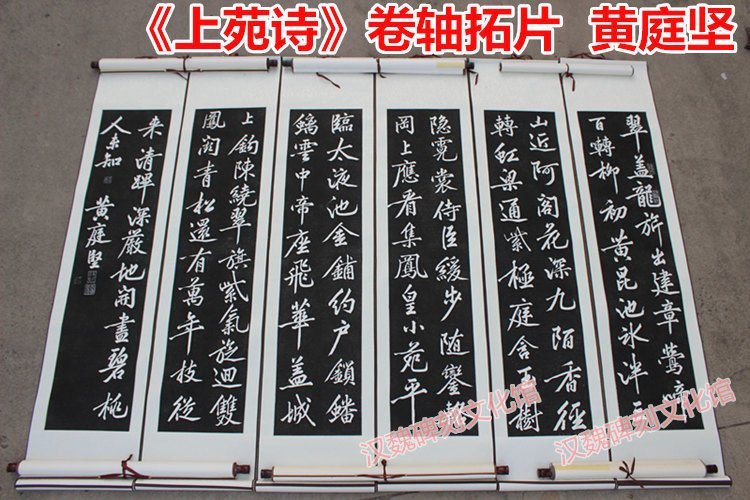 《上苑诗》卷轴拓片 黄庭坚
翠盖龍旂出建章鶯啼
百轉柳初黄昆池氷泮
山近阿閣花深九陌香徑
轉虹梁通紫極庭含玉樹
隐霓裳侍臣緩步随鑾
岡上應看集鳳皇小苑平
臨太液池金鋪約户鎖蟠
螭雲中帝座飛華盖城
上鈎陳繞翠旗紫氣旋迴雙
鳳闕青松還有萬年枝從
来清蹕深嚴地開盡碧桃
人未知 黄庭堅
汉魏碑刻文化馆
汉魏碑刻文化馆